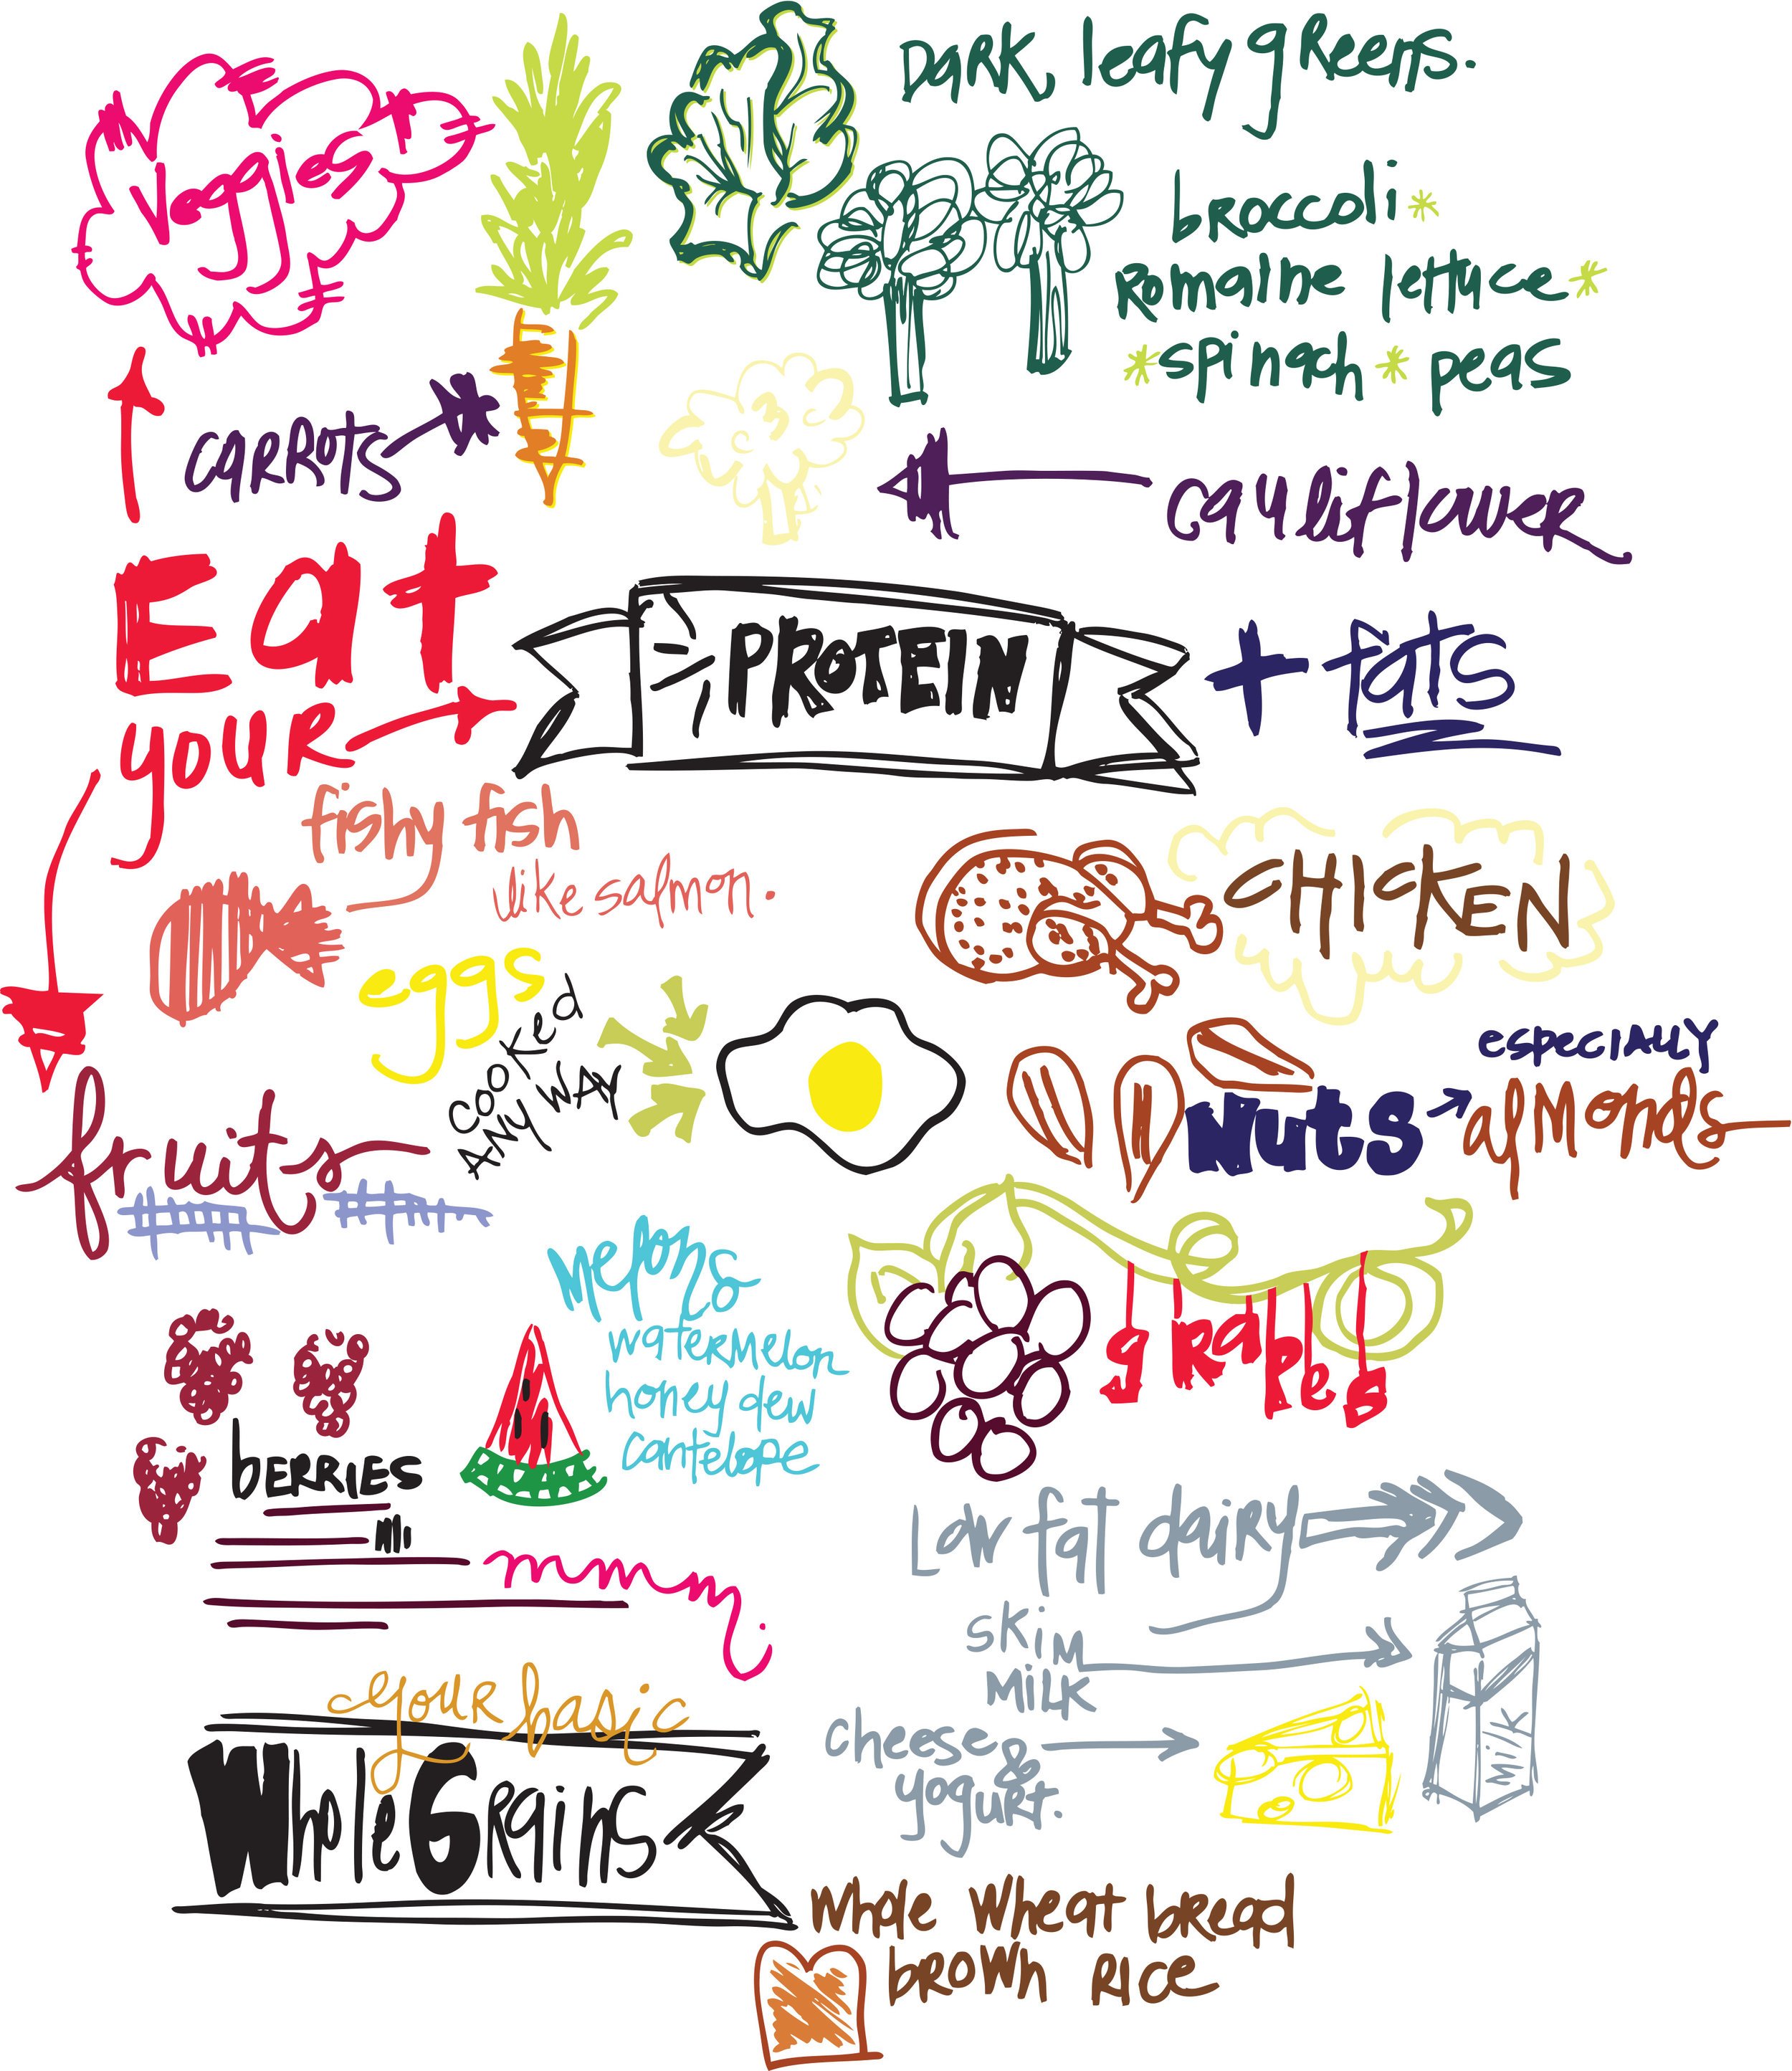 Veggies
Dark leafy greens.
broccoli*
Romaine lettuce*
*spinach* peas
carrots
cauliflower
Eat
your
PROTEIN
+ fats
fishy fish
like salmon.
CHICKEN
eggs
COOKed
ANY WAY
especiALLY
Nuts
almonds
fruits
melons
watermelon
honey dew
cantelope
grapes
beRRIes
Low fat dairy
skim
Milk
cheese &
yogurt.
your basic
Whole Grains
Whole Wheat bread
brown Rice